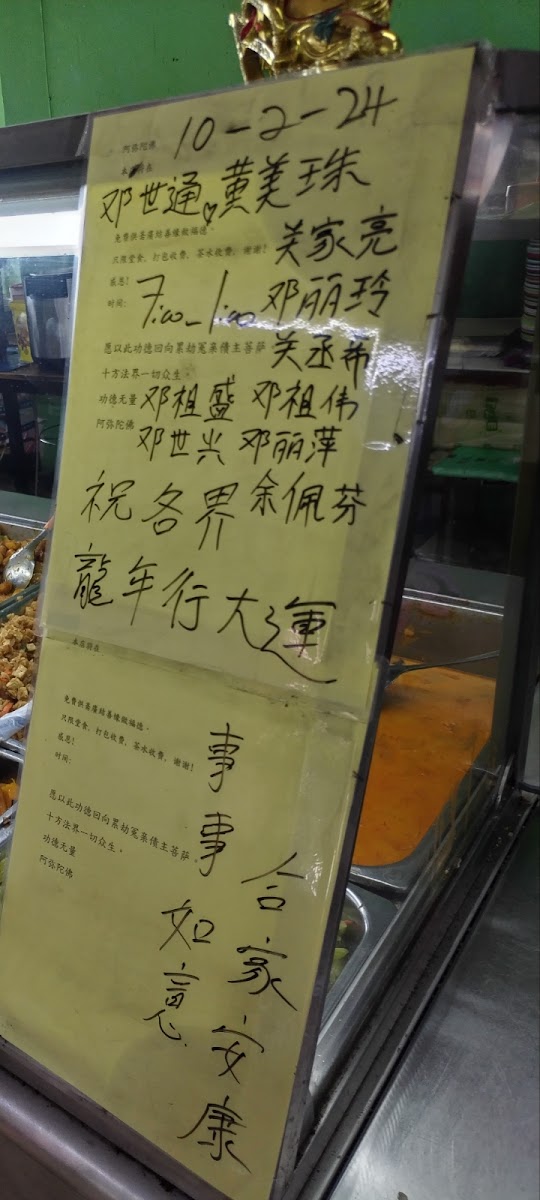 阿弥陀佛 10-2-24
本店谨在
邓世通 黄美珠
免费供斋广结善缘做福德。
只限堂食，打包收费，茶水收费，谢谢！ 关家亮
感恩！
时间： 7:00-1:00 邓丽玲
愿以此功德回向累劫冤亲债主菩萨 关丞希
十方法界一切众生。
功德无量 邓祖盛 邓祖伟
阿弥陀佛 邓世兴 邓丽萍
祝各界 余佩芬
龍年行大運
本店谨在
只限堂食，打包收费，茶水收费，谢谢！
感恩！
时间：
愿以此功德回向累劫冤亲债主菩萨。
十方法界一切众生。
功德无量
阿弥陀佛
事事如意
合家安康